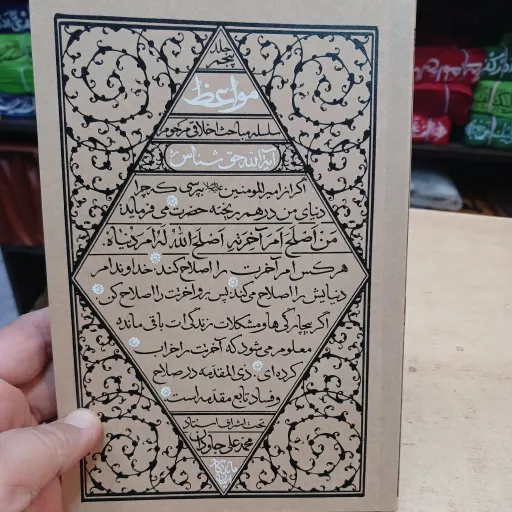 جلد پنجم
مواعظ
سلسله مباحث اخلاقی مرحوم
آیة الله حق شناس
اگر از امیرالمومنین علیه‌السلام بپرسی که چرا
دنیای من درهم ریخته حضرت می فرماید
مَن اَصلَحَ اَمرَ آخِرَتِهِ اَصلَحَ اللهُ لَهُ اَمرَ دُنیاهُ.
هر کس امر آخرت را اصلاح کند خداوند امر
دنیایش را اصلاح می کند پس برو آخرتت را اصلاح کن
اگر بیچارگی ها و مشکلات زندگی ات باقی مانده
معلوم می شود که آخرتت را خراب
کرده ای. ذی المقدمه در صلاح
و فساد تابع مقدمه است
تحت اشراف استاد
محمد علی جاودان